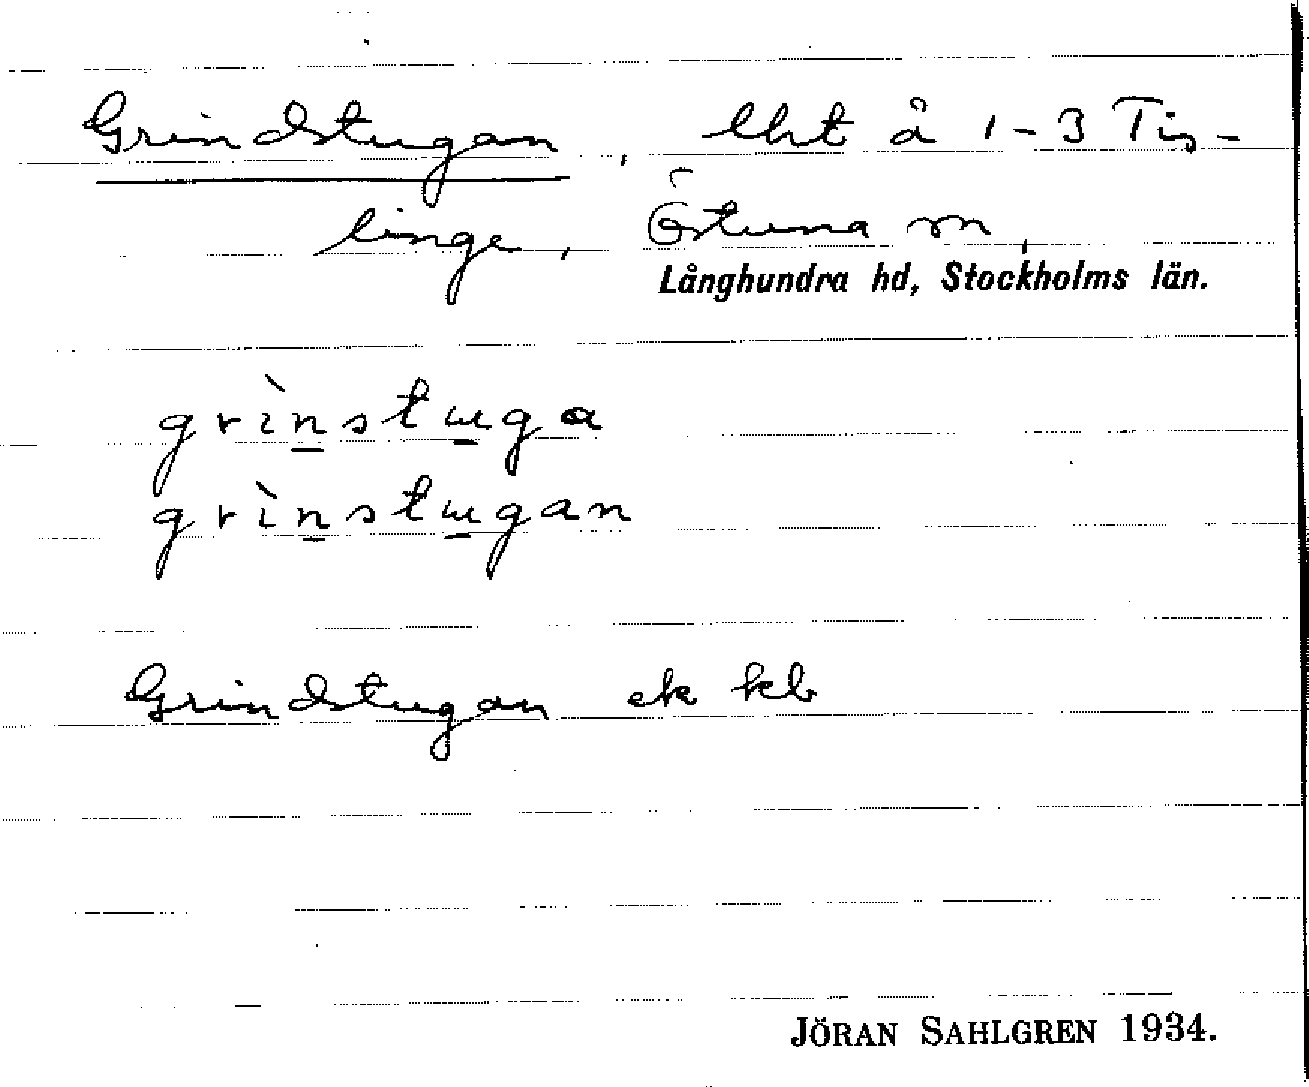 Grindstugan, lht å 1-3 Tis-
linge, Östuna sn,
Långhundra hd, Stockholms län.
grìnstuga
grìnstugan
Grindstugan ek kb
JÖRAN SAHLGREN 1934.